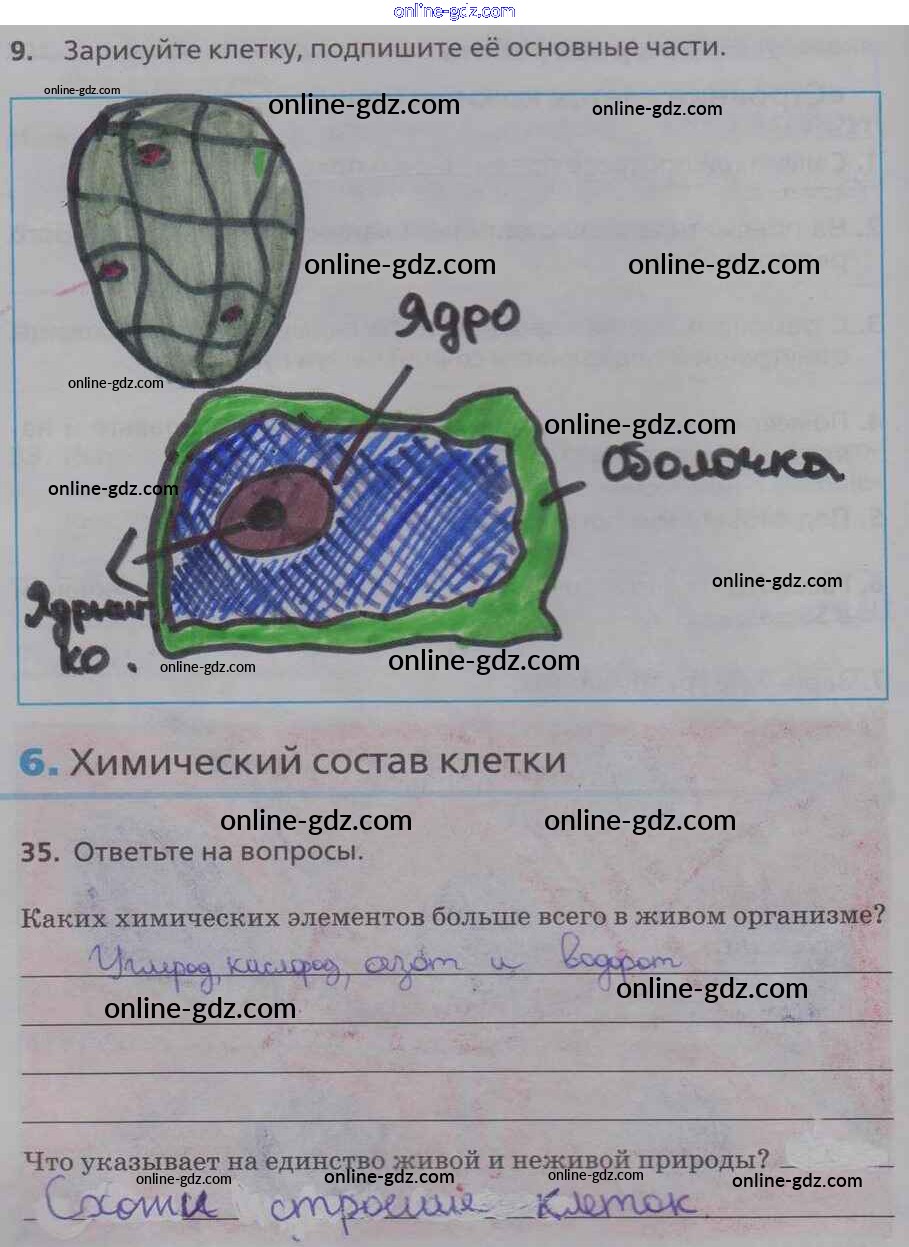 online-gdz.com
9. Зарисуйте клетку, подпишите её основные части.
online-gdz.com
online-gdz.com online-gdz.com
online-gdz.com online-gdz.com
Ядро
online-gdz.com
online-gdz.com
Оболочка
online-gdz.com
online-gdz.com
Ядрыш
ко.
online-gdz.com online-gdz.com
6. Химический состав клетки
online-gdz.com online-gdz.com
35. Ответьте на вопросы.
Каких химических элементов больше всего в живом организме?
Углерод, кислород, азот и водорот
online-gdz.com online-gdz.com
Что указывает на единство живой и неживой природы?
online-gdz.com online-gdz.com online-gdz.com online-gdz.com
строение клеток.